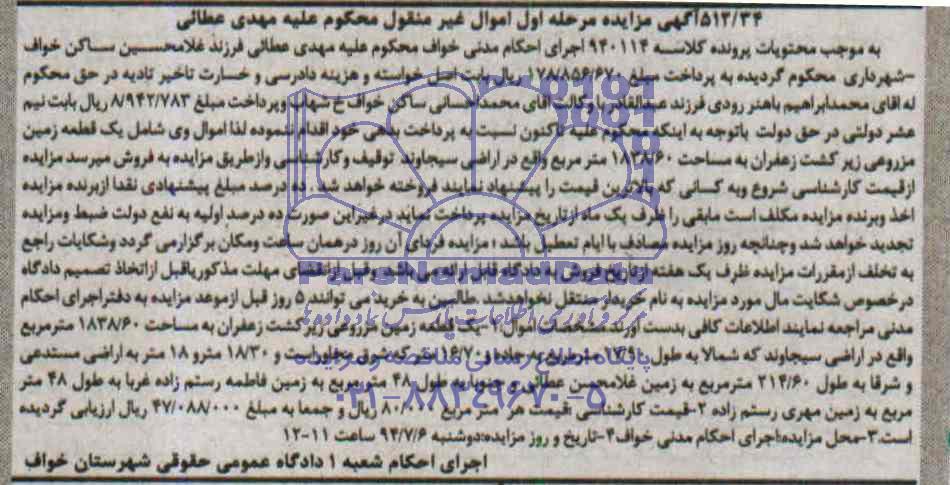 ۵۱۳/۳۴آگهی مزایده مرحله اول اموال غیر منقول محکوم علیه مهدی عطائی
به موجب محتویات پرونده کلاسه ۹۴۰۱۱۴ اجرای احکام مدنی خواف محکوم علیه مهدی عطائی فرزند غلامحسین ساکن خواف
-شهرداری محکوم گردیده به پرداخت مبلغ ۱۷۸/۸۵۶/۶۷۰ ریال بابت اصل خواسته و هزینه دادرسی و خسارت تاخیر تادیه در حق محکوم
له اقای محمدابراهیم باهنر رودی فرزند عبدالقادر با وکالت اقای محمد احسانی ساکن خواف خ شهاب وپرداخت مبلغ ۸/۹۴۲/۷۸۳ ریال بابت نیم
عشر دولتی در حق دولت باتوجه به اینکه محکوم علیه تاکنون نسبت به پرداخت بدهی خود اقدام ننموده لذا اموال وی شامل یک قطعه زمین
مزروعی زیر کشت زعفران به مساحت ۱۸۳۸/۶۰ متر مربع واقع در اراضی سیجاوند توقیف وکارشناسی وازطریق مزایده به فروش میرسد مزایده
ازقیمت کارشناسی شروع وبه کسانی که بالاترین قیمت را پیشنهاد نمایند فروخته خواهد شد . ده درصد مبلغ پیشنهادی نقدا ازبرنده مزایده
اخذ وبرنده مزایده مکلف است مابقی را ظرف یک ماه ازتاریخ مزایده پرداخت نماید درغیراین صورت ده درصد اولیه به نفع دولت ضبط ومزایده
تجدید خواهد شد وچنانچه روز مزایده مصادف با ایام تعطیل باشد ؛ مزایده فردای آن روز درهمان ساعت ومکان برگزارمی گردد وشکایات راجع
به تخلف ازمقررات مزایده ظرف یک هفته ازتاریخ فروش به دادگاه قابل ارائه می باشد وقبل ازانقضای مهلت مذکوریاقبل ازاتخاذ تصمیم دادگاه
درخصوص شکایت مال مورد مزایده به نام خریدار منتقل نخواهدشد .طالبین به خرید می توانند ۵ روز قبل ازموعد مزایده به دفتراجرای احکام
مدنی مراجعه نمایند اطلاعات کافی بدست آورند مشخصات اموال:۱-یک قطعه زمین مزروعی زیر کشت زعفران به مساحت ۱۸۳۸/۶۰ مترمربع
واقع در اراضی سیجاوند که شمالا به طول مترمربع به جاده و که است و ۱۸/۳۰ مترو ۱۸ متر به اراضی مستدعی
و شرقا به طول ۲۱۴/۶۰ مترمربع به زمین غلامحسن عطائی و جنوبا به طول ۴۸ مترمربع به زمین فاطمه رستم زاده غربا به طول ۴۸ متر
مربع به زمین مهری رستم زاده ۲-قیمت کارشناسی :قیمت هر متر مربع ریال و جمعا به مبلغ ۴۷/۰۸۸/۰۰۰ ریال ارزیابی گردیده
است.۳-محل مزایده:اجرای احکام مدنی خواف۴-تاریخ و روز مزایده:دوشنبه ۹۴/۷/۶ ساعت ۱۱-۱۲
اجرای احکام شعبه ۱ دادگاه عمومی حقوقی شهرستان خواف
ParsNamadData
۰۲۱-۸۸۳۴۹۶۷۰-۵